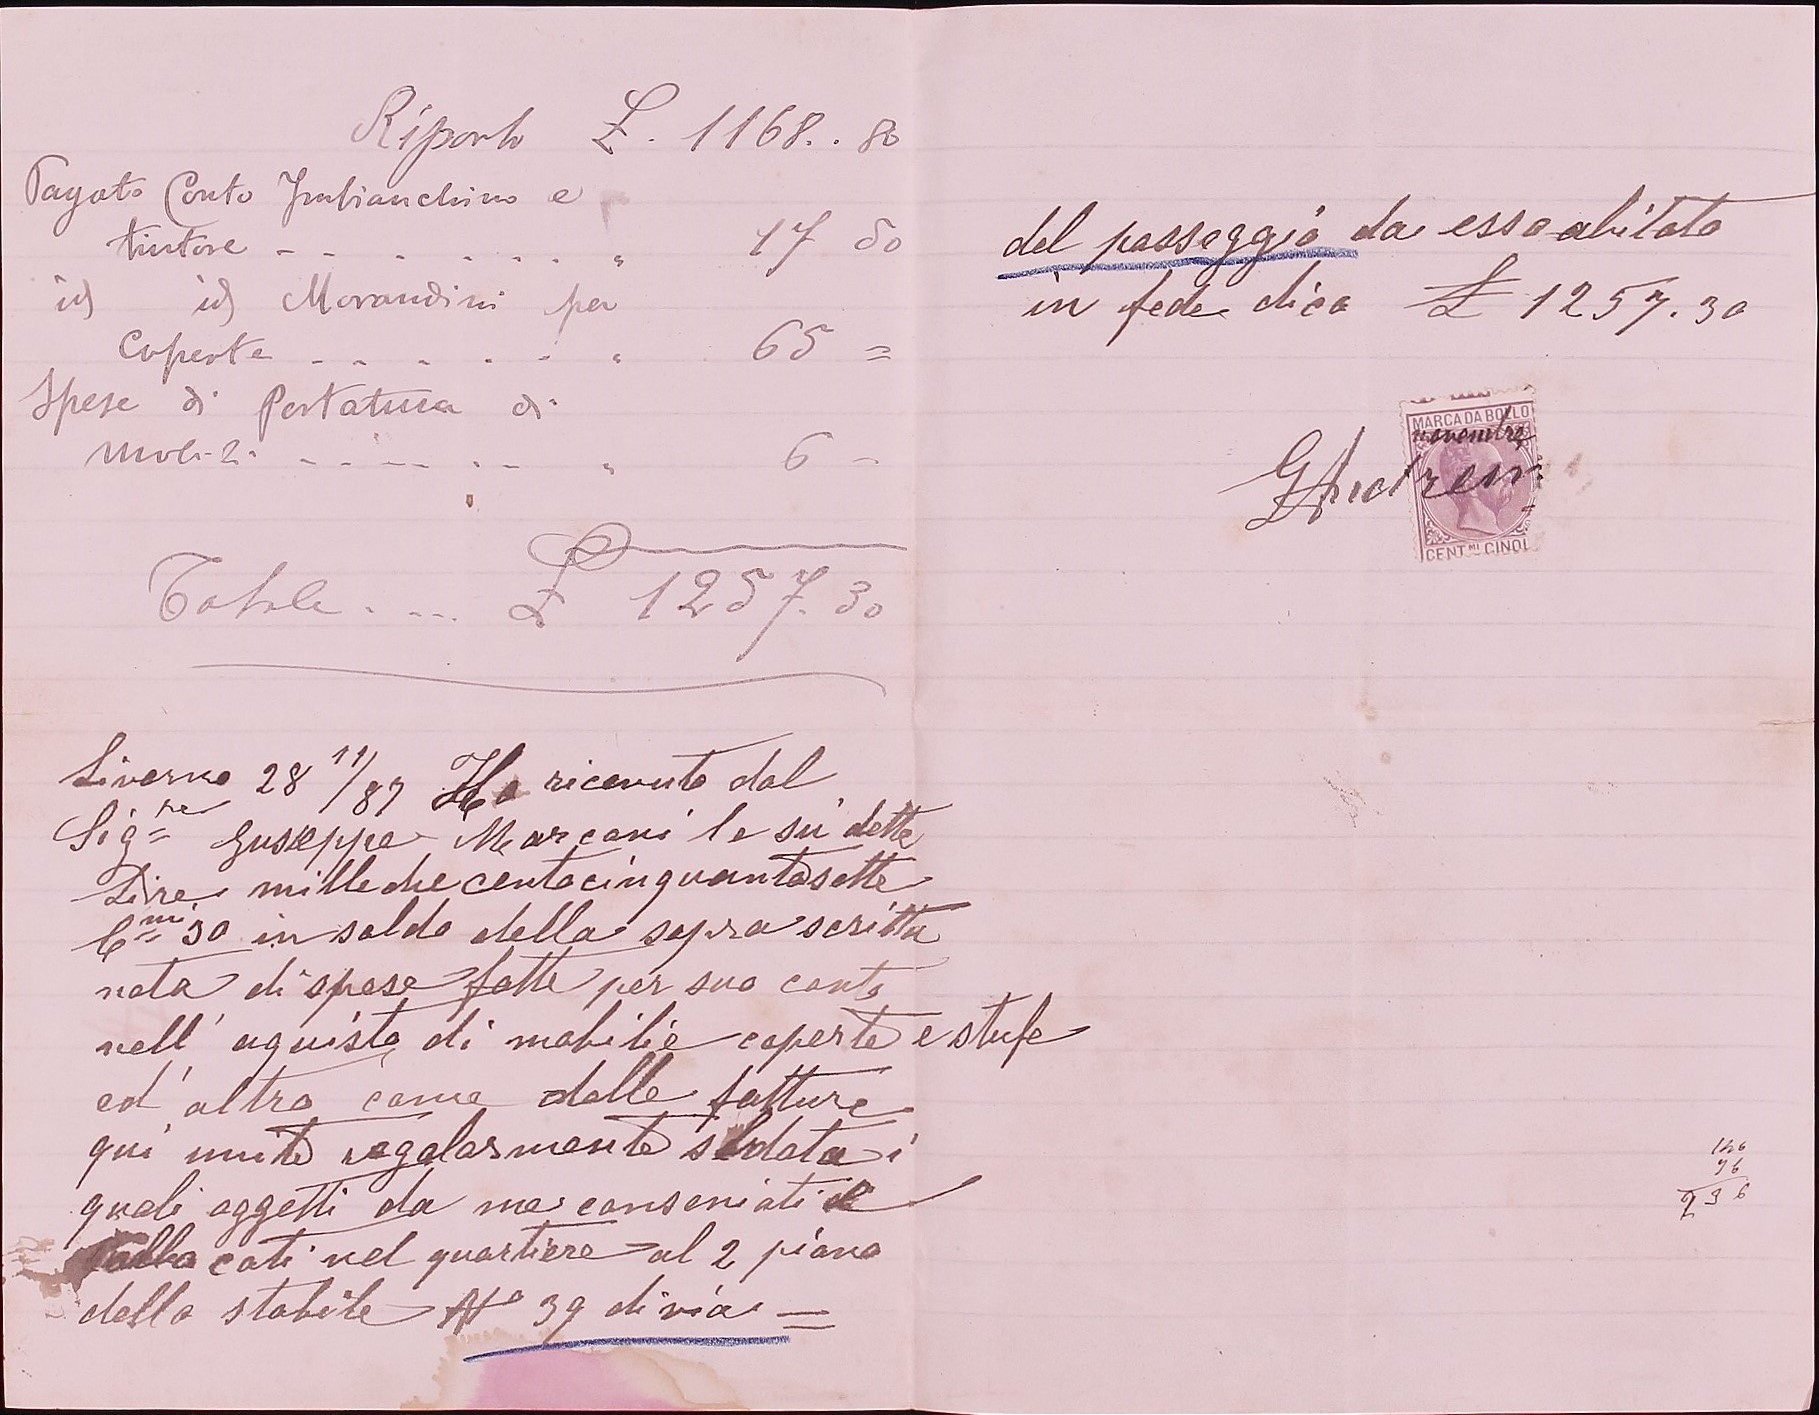 Riporto £. 1168..80
Pagato Conto Imbianchino e
tintore - - . . . . . " 17 50
id id Morandini per
Coperte . . . . . . " 65 =
Spese di Portatura di
mobili . . . . . . " 6 -
Totale . . .. £ 1257.30
Livorno 28 11/87 Ho ricevuto dal
Sigre Guseppe Marconi le su dette
Lire mille due centocinquantasette
Cmi 30 in saldo della sopra scritta
nota di spese fatte per suo conto
nell' aquisto di mobilie coperte e stufe
ed altro come dalle fatture
qui unite regolarmente saldate i
quali oggetti da me conseniati e
collocati nel quartiere al 2 piano
dello stabile No 39 di via =
del passeggio da esso abitato
in fede dico £ 1257.30
MARCA DA BOLLO
novembre
CENT.MI CINQ
236